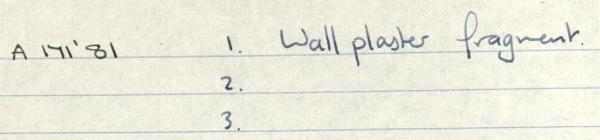 A 171'81 1. Wall plaster fragment.
2.
3.